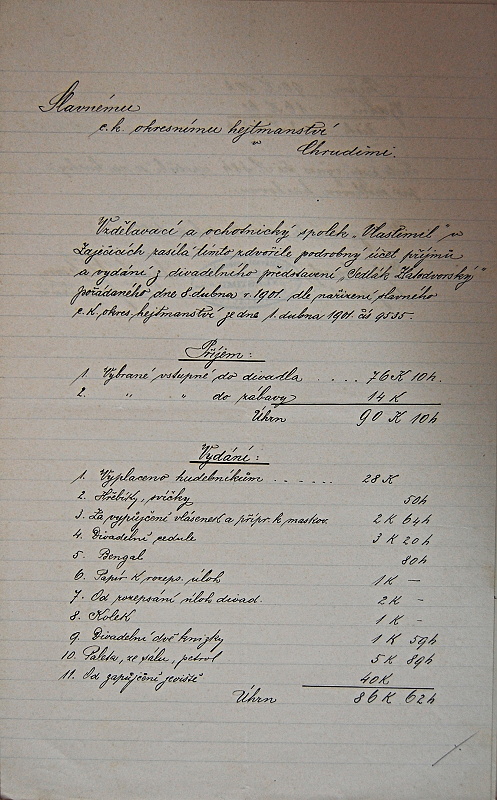 Slavnému
c. k. okresnímu hejtmanství
v
Chrudimi.
Vzdělavací a ochotnický spolek „Vlastimil“ v
Zaječicích zasílá tímto zdvořile podrobný účet příjmů
a vydání z divadelního představení „Sedlák Zlatodvorský“
pořádaného dne 8. dubna r. 1901. dle nařízení slavného
c. k. okres. hejtmanství ze dne 1. dubna 1901. čís 9535.
Příjem:
1. Vybrané vstupné do divadla . . . . . 76 K 10 h.
2. „ „ do zábavy 14 K
Úhrn 90 K 10 h
Vydání:
1. Vyplaceno hudebníkům . . . . . . 28 K
2. Hřebíky, svíčky 50 h
3. Za vypůjčení vlásenek a přípr. k maskov. 2 K 64 h
4. Divadelní cedule 3 K 20 h
5. Bengal 80 h
6. Papír k rozeps. úloh 1 K —
7. Od rozepsání úloh divad. 2 K —
8. Kolek 1 K —
9. Divadelní dvě knížky 1 K 59 h
10. ze sálu, petrol 5 K 89 h
11. Od zapůjčení jeviště 40 K
Úhrn 86 K 62 h